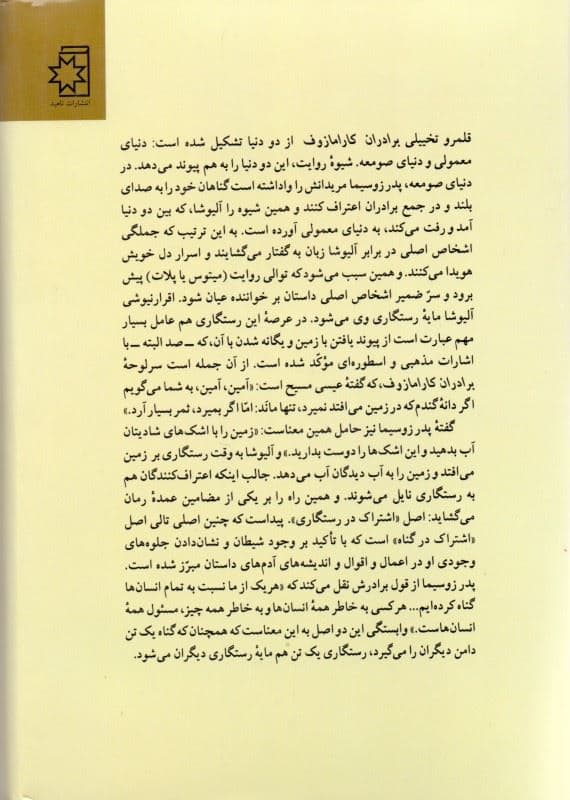 انتشارات ناهید
قلمرو تخییلی برادران کارامازوف از دو دنیا تشکیل شده است: دنیای
معمولی و دنیای صومعه. شیوهٔ روایت، این دو دنیا را به هم پیوند می‌دهد. در
دنیای صومعه، پدر زوسیما مریدانش را واداشته است گناهان خود را به صدای
بلند و در جمع برادران اعتراف کنند و همین شیوه را آلیوشا، که بین دو دنیا
آمد و رفت می‌کند، به دنیای معمولی آورده است. به این ترتیب که جملگی
اشخاص اصلی در برابر آلیوشا زبان به گفتار می‌گشایند و اسرار دل خویش
هویدا می‌کنند. و همین سبب می‌شود که توالی روایت (میتوس یا پلات) پیش
برود و سرّ ضمیر اشخاص اصلی داستان بر خواننده عیان شود. اقرارنیوشی
آلیوشا مایهٔ رستگاری وی می‌شود. در عرصهٔ این رستگاری هم عامل بسیار
مهم عبارت است از پیوند یافتن با زمین و یگانه شدن با آن، که ــ صد البته ــ با
اشارات مذهبی و اسطوره‌ای مؤکّد شده است. از آن جمله است سرلوحهٔ
برادران کارامازوف، که گفتهٔ عیسی مسیح است: «آمین، آمین، به شما می‌گویم
اگر دانهٔ گندم که در زمین می‌افتد نمیرد، تنها مانَد: امّا اگر بمیرد، ثمر بسیار آرد.»
گفتهٔ پدر زوسیما نیز حامل همین معناست: «زمین را با اشک‌های شادیتان
آب بدهید و این اشک‌ها را دوست بدارید.» و آلیوشا به وقت رستگاری بر زمین
می‌افتد و زمین را به آب دیدگان آب می‌دهد. جالب اینکه اعتراف‌کنندگان هم
به رستگاری نایل می‌شوند. و همین راه را بر یکی از مضامین عمدهٔ رمان
می‌گشاید: اصل «اشتراک در رستگاری». پیداست که چنین اصلی تالی اصل
«اشتراک در گناه» است که با تأکید بر وجود شیطان و نشان‌دادن جلوه‌های
وجودی او در اعمال و اقوال و اندیشه‌های آدم‌های داستان مبرّز شده است.
پدر زوسیما از قول برادرش نقل می‌کند که «هریک از ما نسبت به تمام انسان‌ها
گناه کرده‌ایم... هرکسی به خاطر همهٔ انسان‌ها و به خاطر همه چیز، مسئول همهٔ
انسان‌هاست.» وابستگی این دو اصل به این معناست که همچنان که گناه یک تن
دامن دیگران را می‌گیرد، رستگاری یک تن هم مایهٔ رستگاری دیگران می‌شود.